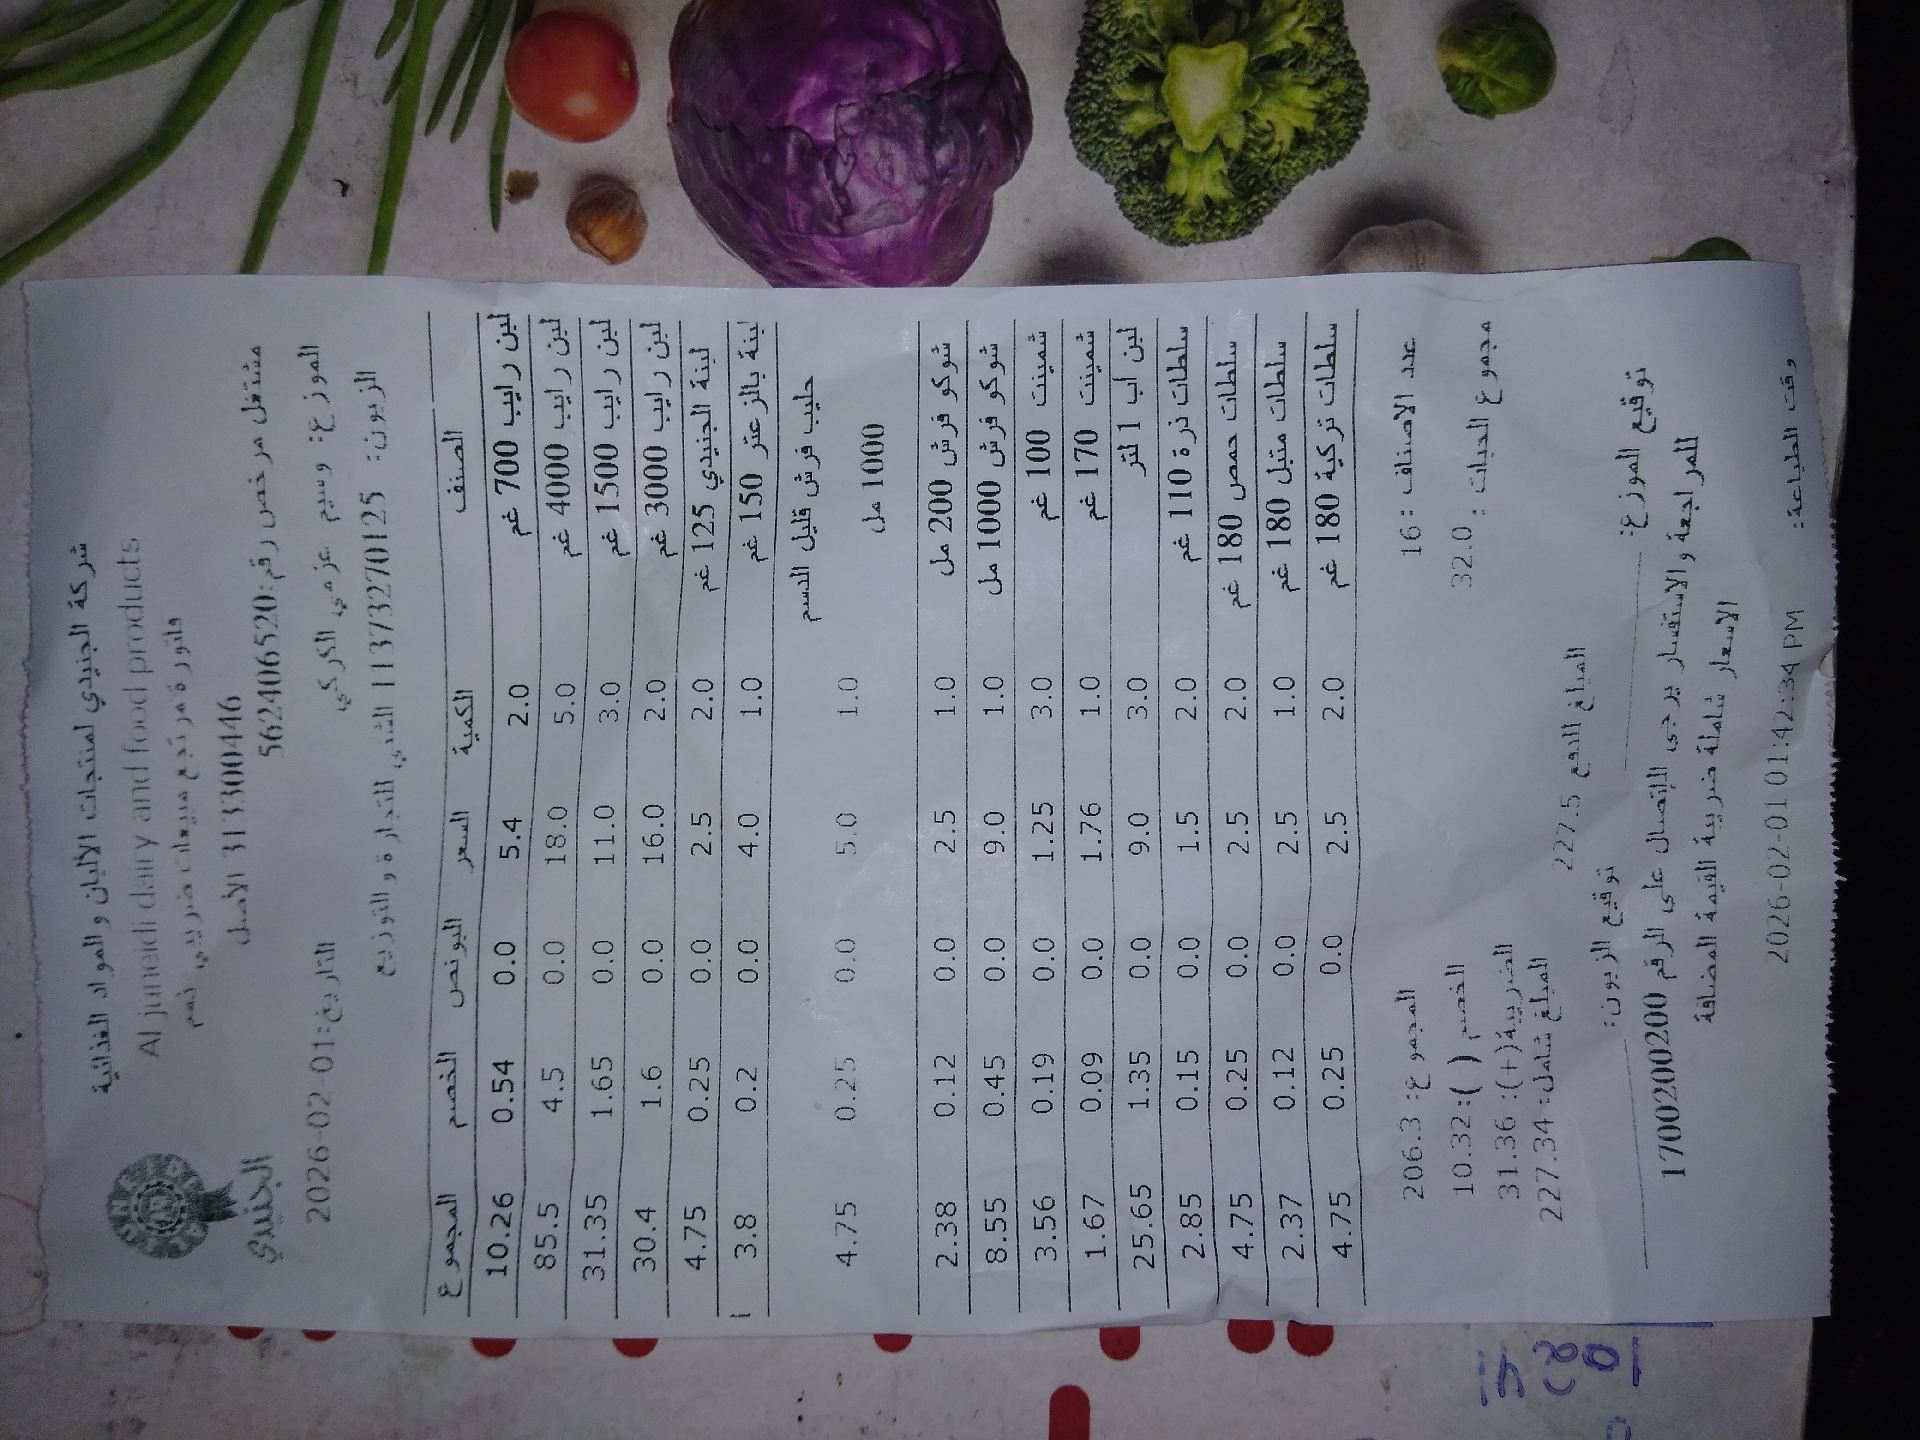 شركة الجنيدي لمنتجات الالبان والمواد الغذائية
Al juneidi dairy and food products
فاتورة مرتجع مبيعات ضريبي ذمم
313300446 الاصل
مشتغل مرخص رقم:562406520
الجنيدي
الموزع: وسيم عزمي الكركي
التاريخ:2026-02-01
الزبون: 1137270125 الشني للتجارة والتوزيع
الصنف الكمية السعر البونص الخصم المجموع
لبن رايب 700 غم 2.0 5.4 0.0 0.54 10.26
لبن رايب 4000 غم 5.0 18.0 0.0 4.5 85.5
لبن رايب 1500 غم 3.0 11.0 0.0 1.65 31.35
لبن رايب 3000 غم 2.0 16.0 0.0 1.6 30.4
لبنة الجنيدي 125 غم 2.0 2.5 0.0 0.25 4.75
لبنة بالزعتر 150 غم 1.0 4.0 0.0 0.2 3.8
حليب فرش قليل الدسم 1.0 5.0 0.0 0.25 4.75
1000 مل
شوكو فرش 200 مل 1.0 2.5 0.0 0.12 2.38
شوكو فرش 1000 مل 1.0 9.0 0.0 0.45 8.55
شمينت 100 غم 3.0 1.25 0.0 0.19 3.56
شمينت 170 غم 1.0 1.76 0.0 0.09 1.67
لبن اب 1 لتر 3.0 9.0 0.0 1.35 25.65
سلطات ذرة 110 غم 2.0 1.5 0.0 0.15 2.85
سلطات حمص 180 غم 2.0 2.5 0.0 0.25 4.75
سلطات متبل 180 غم 1.0 2.5 0.0 0.12 2.37
سلطات تركية 180 غم 2.0 2.5 0.0 0.25 4.75
عدد الاصناف : 16 المجموع: 206.3
مجموع الحبات : 32.0 الخصم (-):10.32
الضريبة(+): 31.36
المبلغ شامل: 227.34
المبلغ الدفع 227.5
توقيع الموزع: توقيع الزبون:
للمراجعة والاستفسار يرجى الإتصال على الرقم 1700200200
الاسعار شاملة ضريبة القيمة المضافة
وقت الطباعة: 2026-02-01 01:42:34 PM